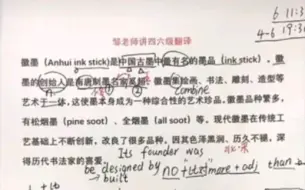 6 11:3
邹老师讲四六级翻译
4-6 19:3
徽墨（Anhui ink stick)是中国古墨中最有名的墨品（ink stick)。徽
墨的创始人是南唐制墨名家奚超。徽墨集绘画、书法、雕刻、造型等
combine
艺术于一体，这使墨本身成为一种综合性的艺术珍品。徽墨品种繁多，
有松烟墨（pine soot）、全烟墨（all soot）等。现代徽墨在传统工
艺基础上不断创新，改良了很多品种，因其色泽黑润、历久不褪，深
得历代书法家的喜爱。
Its founder was
be designed by no + more + adj than
built